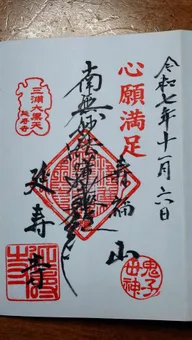 令和七年十一月六日
心願満足
南無妙法蓮華経
寿福山
延寿寺
三浦大黒天
延寿寺
鬼子母神